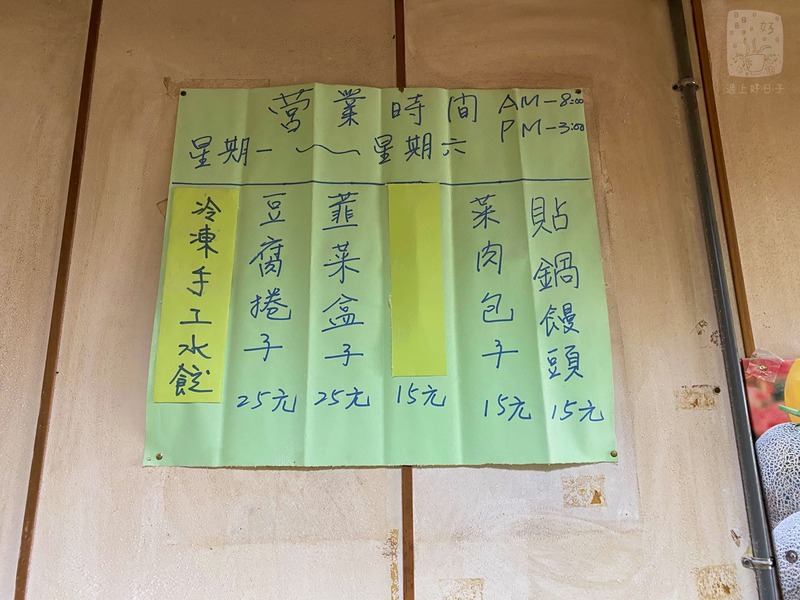 營業時間 AM-8:00
PM-3:00
星期一～星期六
貼鍋饅頭 15元
菜肉包子 15元
15元
韮菜盒子 25元
豆腐捲子 25元
冷凍手工水餃
日日好
遇上好日子